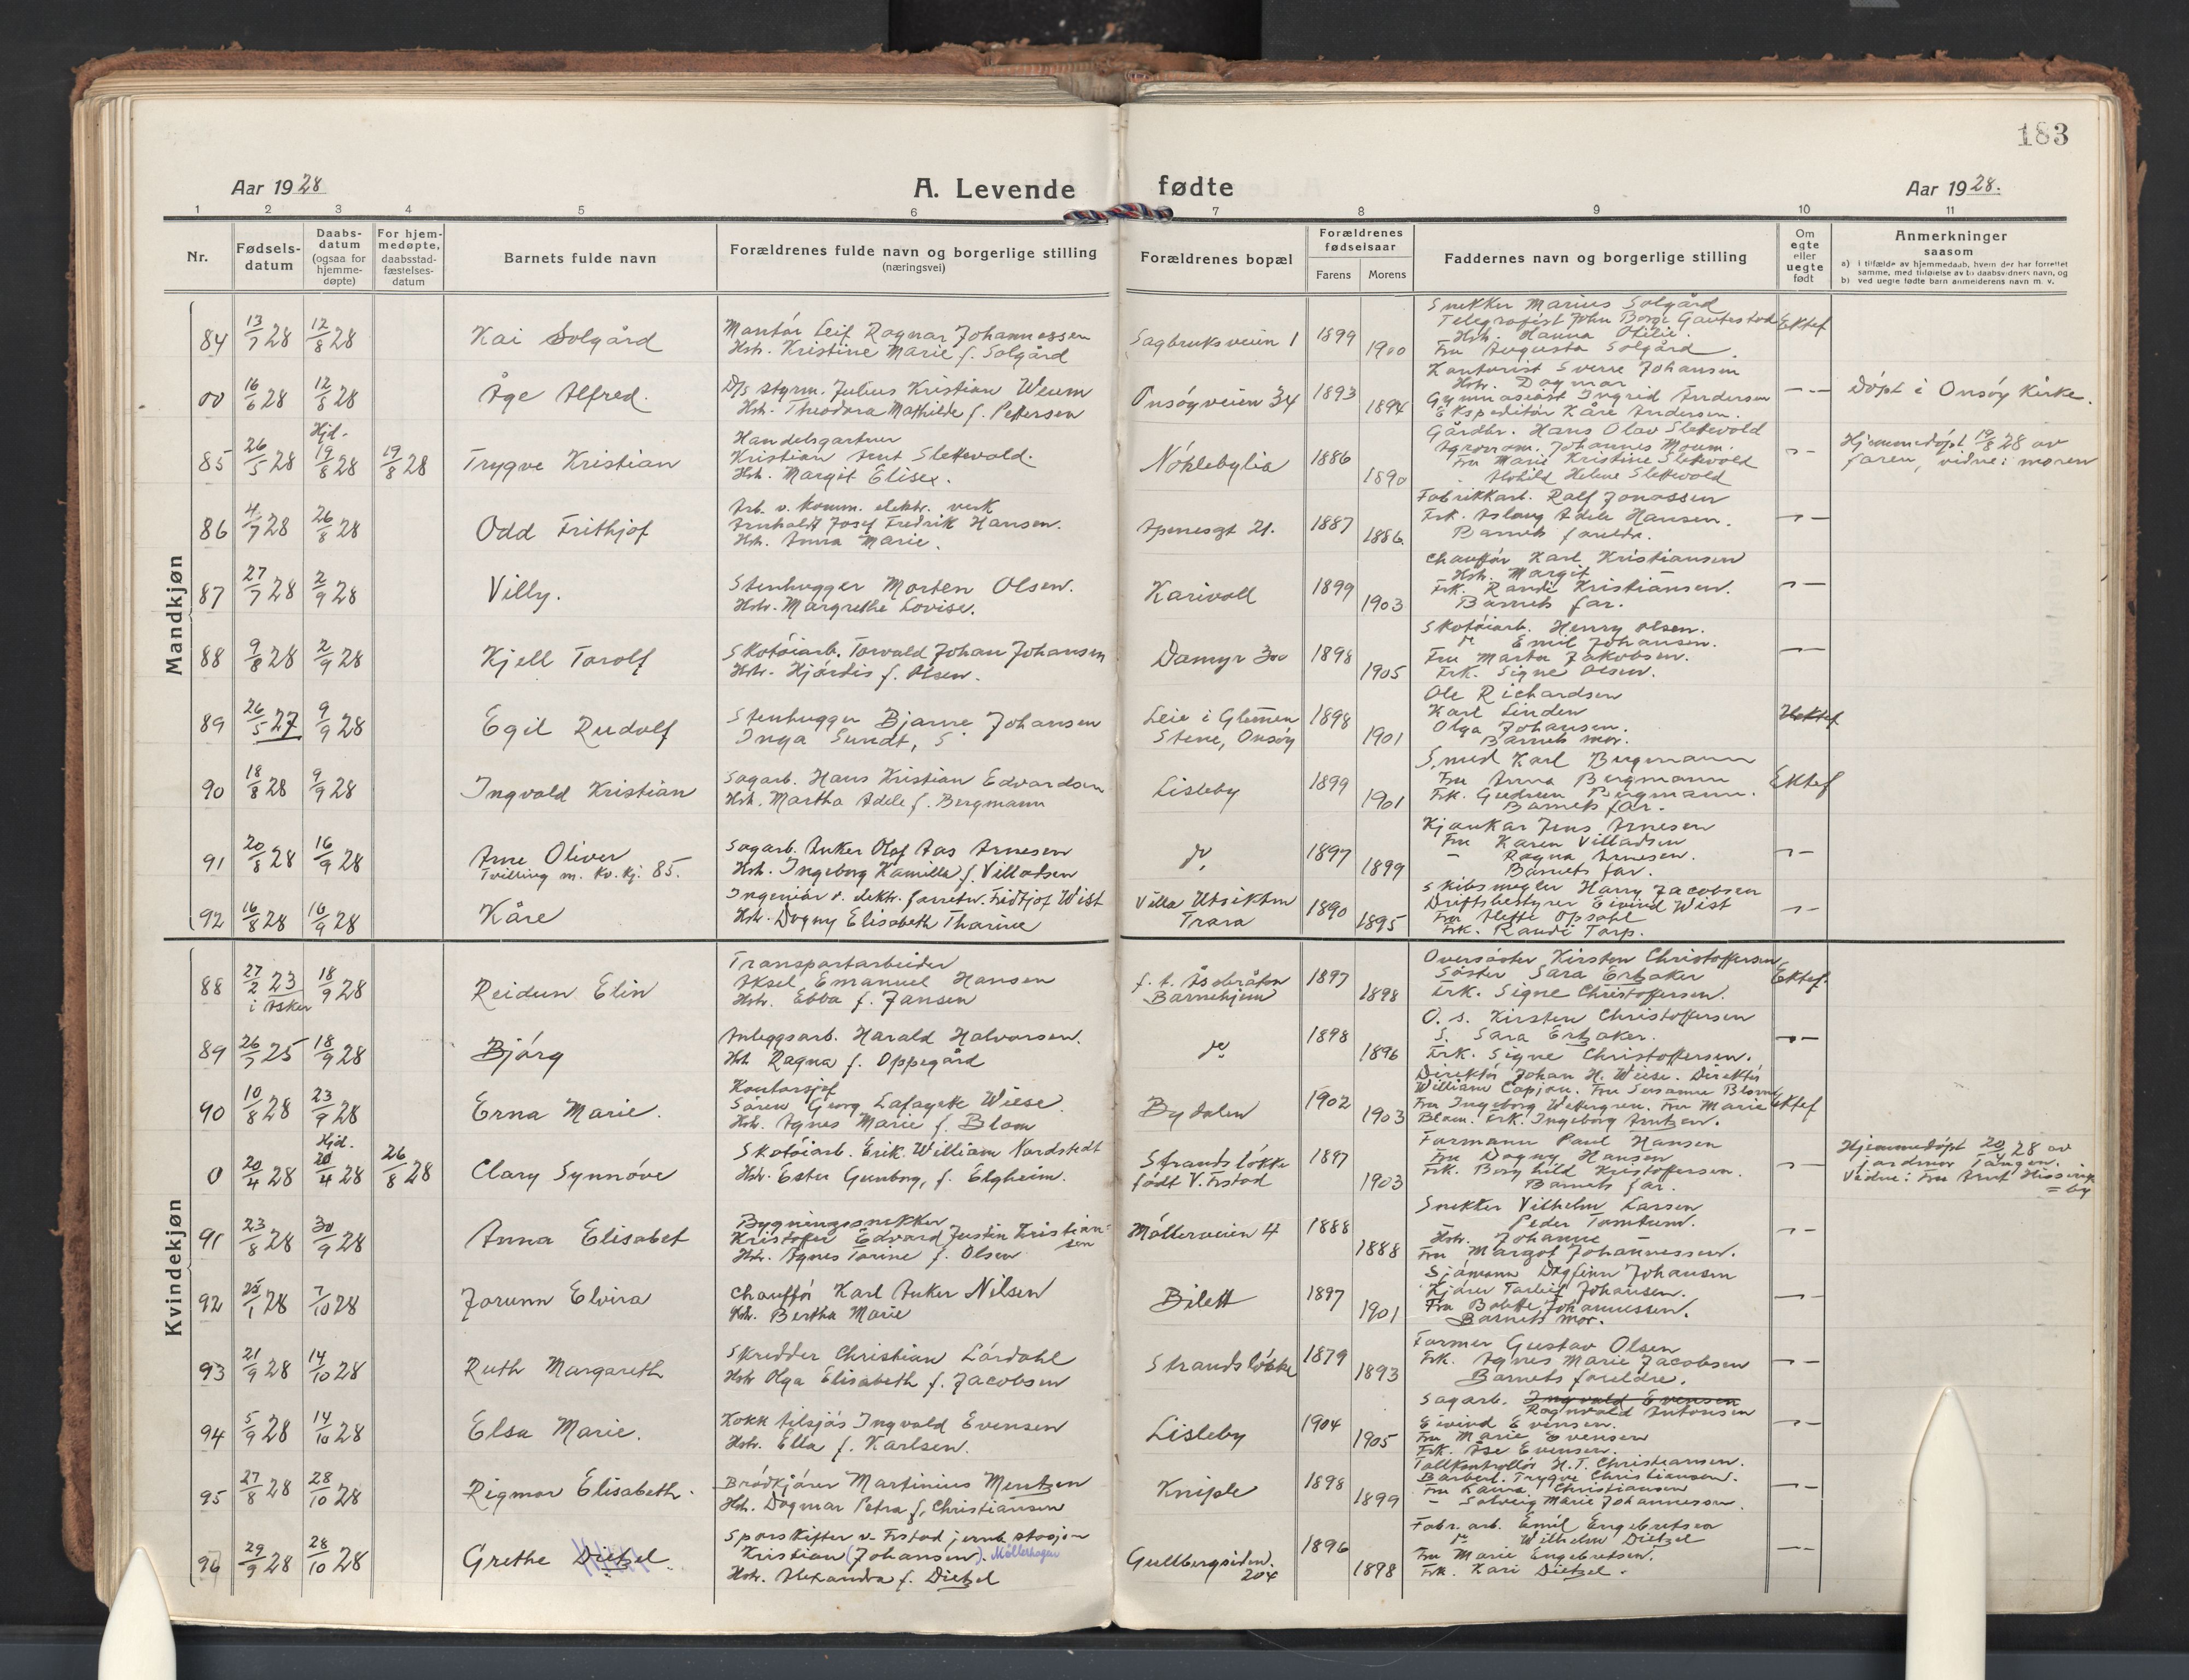 183
Aar 1928
A. Levende fødte
Aar 1928.
1 2 3 4 5 6 7 8 9 10 11
Nr.
Fødsels-
datum
Daabs-
datum
(ogsaa for
hjemme-
døpte)
For hjem-
medøpte,
daabsstad-
fæstelses-
datum
Barnets fulde navn
Forældrenes fulde navn og borgerlige stilling
(næringsvei)
Forældrenes bopæl
Forældrenes
fødselsaar
Farens Morens
Faddernes navn og borgerlige stilling
Om
egte
eller
uegte
født
Anmerkninger
saasom
a) i tilfælde av hjemmedaab, hvem der har forrettet
samme, med tilføielse av to daabsvidners navn, og
b) ved uegte fødte barn anmelderens navn m. v.
Mandkjøn
84 13/7 28 12/8 28 Kai Solgård
Montør Leif Ragnar Johannessen
Hstr. Kristine Marie f. Solgård
Sagbruksveien 1 1899 1900
Snekker Marius Solgård
Telegrafist John Borge Gautestad
Hstr. Hanna Otilie.
Fru Augusta Solgård.
Ektef
00 16/6 28 12/8 28 Åge Alfred.
D/s styrm. Julius Kristian Weum
Hstr. Theodora Mathilde f. Pettersen
Onsøyveien 34 1893 1894
Kontorist Sverre Johansen
Hstr. Dagmar
Gymnasiast Ingrid Andersen
Ekspeditør Kåre Andersen.
Døpt i Onsøy Kirke.
85 26/5 28 Hjd. 19/8 28 19/8 28 Trygve Kristian
Handelsgartner
Kristian Arnt Slettevold.
Hstr. Margit Elise.
Nøklebylia 1886 1890
Gårdbr. Hans Olav Slettevold
Agronom. Johannes Moum.
Fru Marie Kristine Slettevold
Helene Slettevold
Hjemmedøpt 19/8 28 av
faren, vidne: moren
86 4/7 28 26/8 28 Odd Frithjof
Arb. v. komm. elektr. verk
Arnholdt Josef Fredrik Hansen.
Hstr. Anna Marie.
Apenesgt 21. 1887 1886.
Fabrikkarb. Ralf Jonassen
Frk. Aslaug Adele Hansen.
Barnets foreldre.
87 27/7 28 2/9 28 Villy.
Stenhugger Morten Olsen.
Hstr. Margrethe Lovise.
Karivoll 1899 1903
Chauffør Karl Kristiansen
Hstr. Margit
Frk. Randi Kristiansen.
Barnets far.
88 9/8 28 2/9 28 Kjell Torolf
Skotøiarb. Torvald Johan Johansen
Hstr. Hjørdis f. Olsen.
Damyr 300 1898 1905
Skotøiarb. Henry Olsen.
do Emil Johansen.
Fru Marta Jakobsen.
Frk. Signe Olsen.
89 26/5 27 9/9 28 Egil Rudolf
Stenhugger Bjarne Johansen
Inga Sundt, S
Leie i Glemmen
Stene, Onsøy 1898 1901
Ole Richardsen
Karl Linden
Olga Johansen.
Barnets mor.
Uektef
90 18/8 28 9/9 28 Ingvald Kristian
Sagarb. Hans Kristian Edvardsen
Hstr. Martha Adele f. Bergmann
Lisleby 1899 1901
Smed Karl Bergmann
Fru Anna Bergmann
Frk. Gudrun Bergmann.
Barnets far.
Ektef
91 20/8 28 16/9 28 Arne Oliver
Tvilling m. Kv. kj. 85.
Sagarb. Anker Olaf Aas Arnesen
Hstr. Ingeborg Kamilla f. Villadsen
do. 1897 1899
Kjøukar Jens Arnesen
Fru Karen Villadsen
– Ragna Arnesen.
Barnets far.
92 16/8 28 16/9 28 Kåre
Ingeniør v. elektr. forretn. Fridtjof Wist
Hstr. Dagny Elisabeth Tharine
Villa Utsikten
Trara 1890 1895
Skibsmegler Harry Jacobsen
Driftsbestyrer Eivind Wist
Fru Opsahl
Frk. Randi Torp.
Kvindekjøn
88 27/2 23 i Asker 18/9 28 Reidun Elin
Transportarbeider
Aksel Emanuel Hansen
Hstr. Ebba f. Jansen
Barnehjem 1897 1898
Oversøster Kirsten Christoffersen,
Søster Sara Erbaker
Frk. Signe Christoffersen.
Ektef.
89 26/7 25 18/9 28 Bjørg
Anleggsarb. Harald Halvorsen.
Hst. Ragna f. Oppegård
do 1898 1896
O. s. Kirsten Christoffersen
S. Sara Erbaker.
Frk. Signe Christoffersen.
90 10/8 28 23/9 28 Erna Marie.
Kontorsjef
Søren Georg Lafayette Wiese
Hstr. Agnes Marie f. Blom
Bydalen 1902 1903
Direktør Johan H. Wiese. Direktør
William Capjon. Fru Susanne Blom
Fru Ingeborg Wettergren. Fru Marie
Blom. Frk. Ingeborg Arntzen.
Ektef
0 20/4 28 Hjd. 20/4 28 26/8 28 Clary Synnøve
Skotøiarb. Erik William Nordstedt
Hstr. Ester Gunborg, f. Elgheim.
Strandsløkke
født V. Frstad 1897 1903
Formann Paul Hansen
Fru Dagny Hansen
Frk. Borghild Kristoffersen.
Barnets far.
Hjemmedøpt 20/4 28 av
jordmor Tangen.
Vidne: Fru Arnt
91 23/8 28 30/9 28 Anna Elisabet
Bygningssnekker
Kristofer Edvard Justin Kristian-
sen
Hstr. Agnes Torine f. Olsen
Møllerveien 4 1888 1888
Snekker Vilhelm Larsen
– Peder Tomtum.
Hstr. Johanne
Fru Margot Johannessen.
92 25/1 28 7/10 28 Jorunn Elvira
Chauffør Karl Anker Nilsen
Hstr. Bertha Marie
Bilett 1897 1901
Sjømann Dagfinn Johansen
Kjører Torleif Johansen.
Fru Bolette Johannessen.
Barnets mor.
93 21/9 28 14/10 28 Ruth Margareth
Skredder Christian Lørdahl
Hstr Olga Elisabeth f. Jacobsen
Strandsløkke 1879 1893
Former Gustav Olsen
Frk. Agnes Marie Jacobsen
Barnets foreldre.
94 5/9 28 14/10 28 Elsa Marie.
Kokk tilsjøs Ingvald Evensen
Hstr. Ella f. Karlsen.
Lisleby 1904 1905
Sagarb. Ingvald Evensen
Ragnvald Antonsen
Eivind Evensen.
Fru Marie Evensen
Frk. Åse Evensen.
95 27/8 28 28/10 28 Rigmor Elisabeth.
Brødkjører Martinius Mentzen
Hstr. Dagmar Petra f. Christiansen
Kniple 1898 1899
Tollkontrollør H. T. Christiansen.
Barberl. Trygve Christiansen.
Fru Laura Christiansen
– Solveig Marie Johannessen.
96 29/9 28 28/10 28 Grethe Dietzel.
Sporskifter v. Frstad jernb. stasjon
Kristian (Johansen). Møllerhagen
Hstr. Alexandra f. Dietzel
Gullbergsiden.
204 1896 1898
Fabr. arb. Emil Engebretsen
do Wilhelm Dietzel
Fru Marie Engebretsen.
Frk. Kari Dietzel.